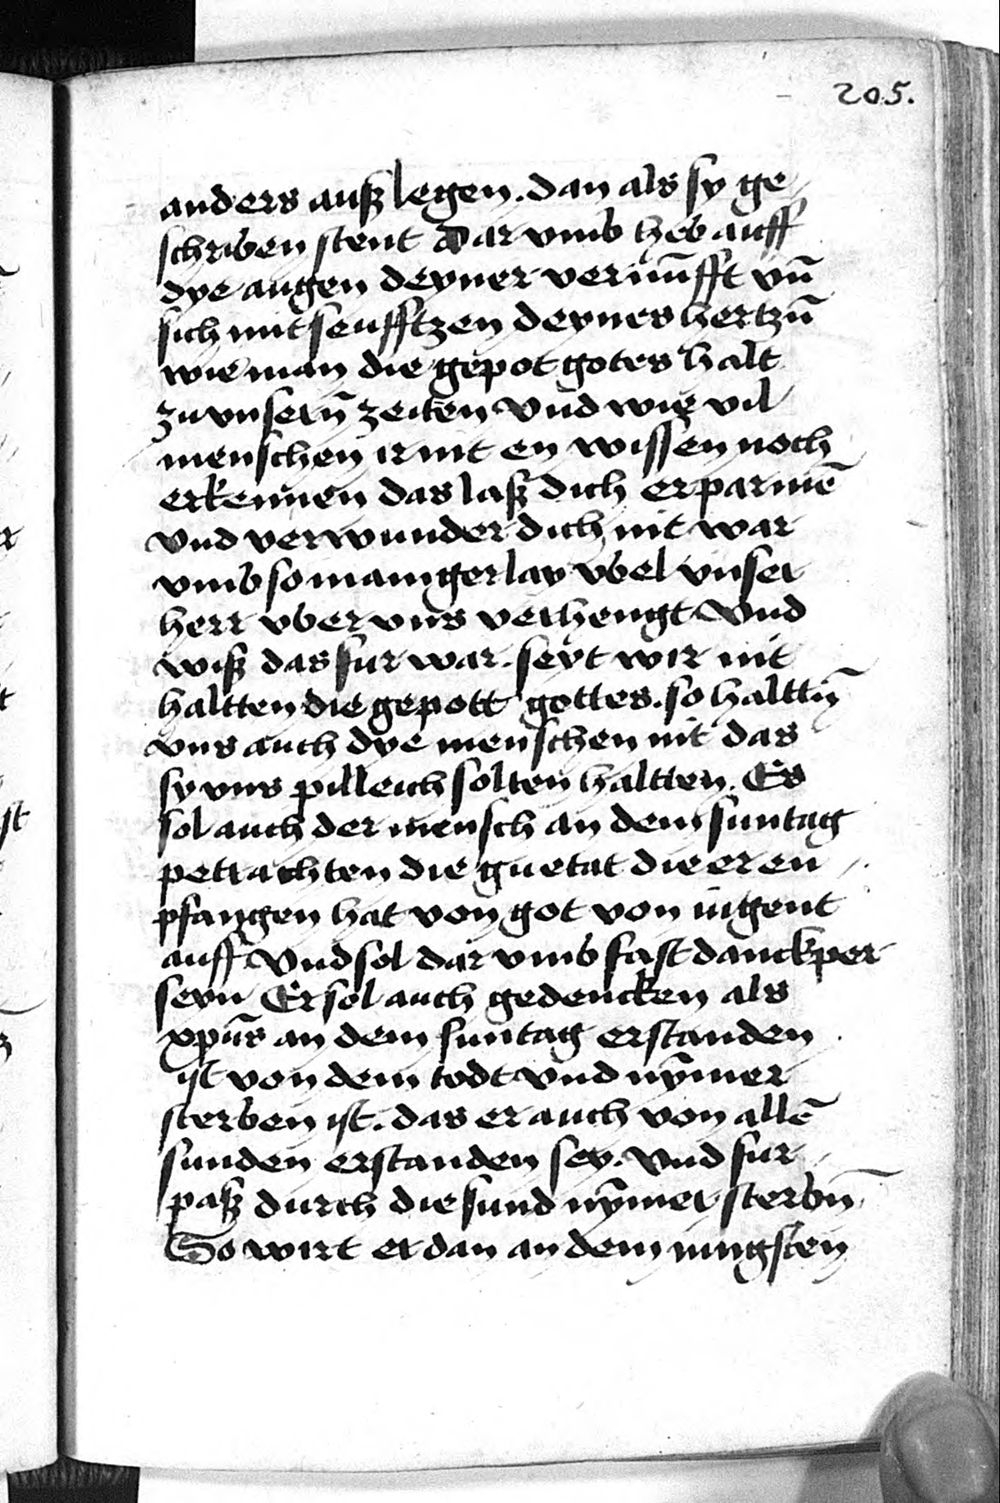 205.
anders auß legen. dan als sy ge
schriben stent Dar vmb heb auff
dye augen deyner vernūfft vn̄
sich mit seufftzen deynes hertzn̄
wie man die gepot gotes halt
zu vnsern̄ zeiten Vnd wie vil
menschen ir nit en wissen noch
erkennen das laß dich erparmē
Vnd verwunder dich nit war
vmb so manigerlay vbel vnser
herr vber vns verhengt Vnd
wiß das fur war. seyt wir nit
haltten die gepott gottes. so halttn̄
vns auch dye menschen nit das
sy vns pilleich solten haltten. Es
sol auch der mensch an dem suntag
petrachten die guetat die er en
pfangen hat von got von iugent
auff Vnd sol dar vmb fast danckper
seyn Er sol auch gedencken als
xpūs an dem suntag erstanden
ist von dem todt vnd nȳmer
sterben ist. das er auch von allē
sunden erstanden sey. Vnd fur
paß durch die sund nȳmer sterbn̄
So wirt er dan an dem iungsten